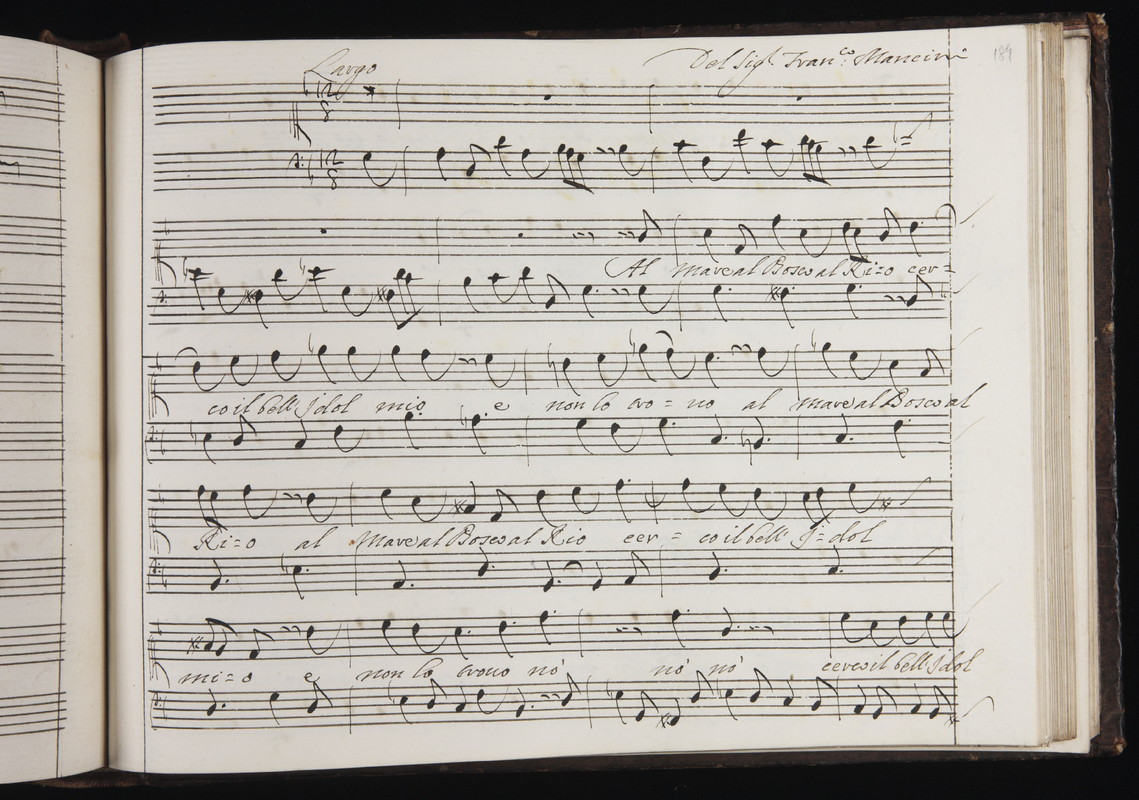 Largo Del Sig.r Fran.co: Mancini 189
12 8
12 8
Al Mare al Bosco al Ri=o cer=
co il bell' Jdol mio e non lo tro=no al Mare al Bosco al
Ri=o al Mare al Bosco al Rio cer=co il bell' J=dol
mi=o e non lo trouo nò nò nò cerco il bell' Jdol